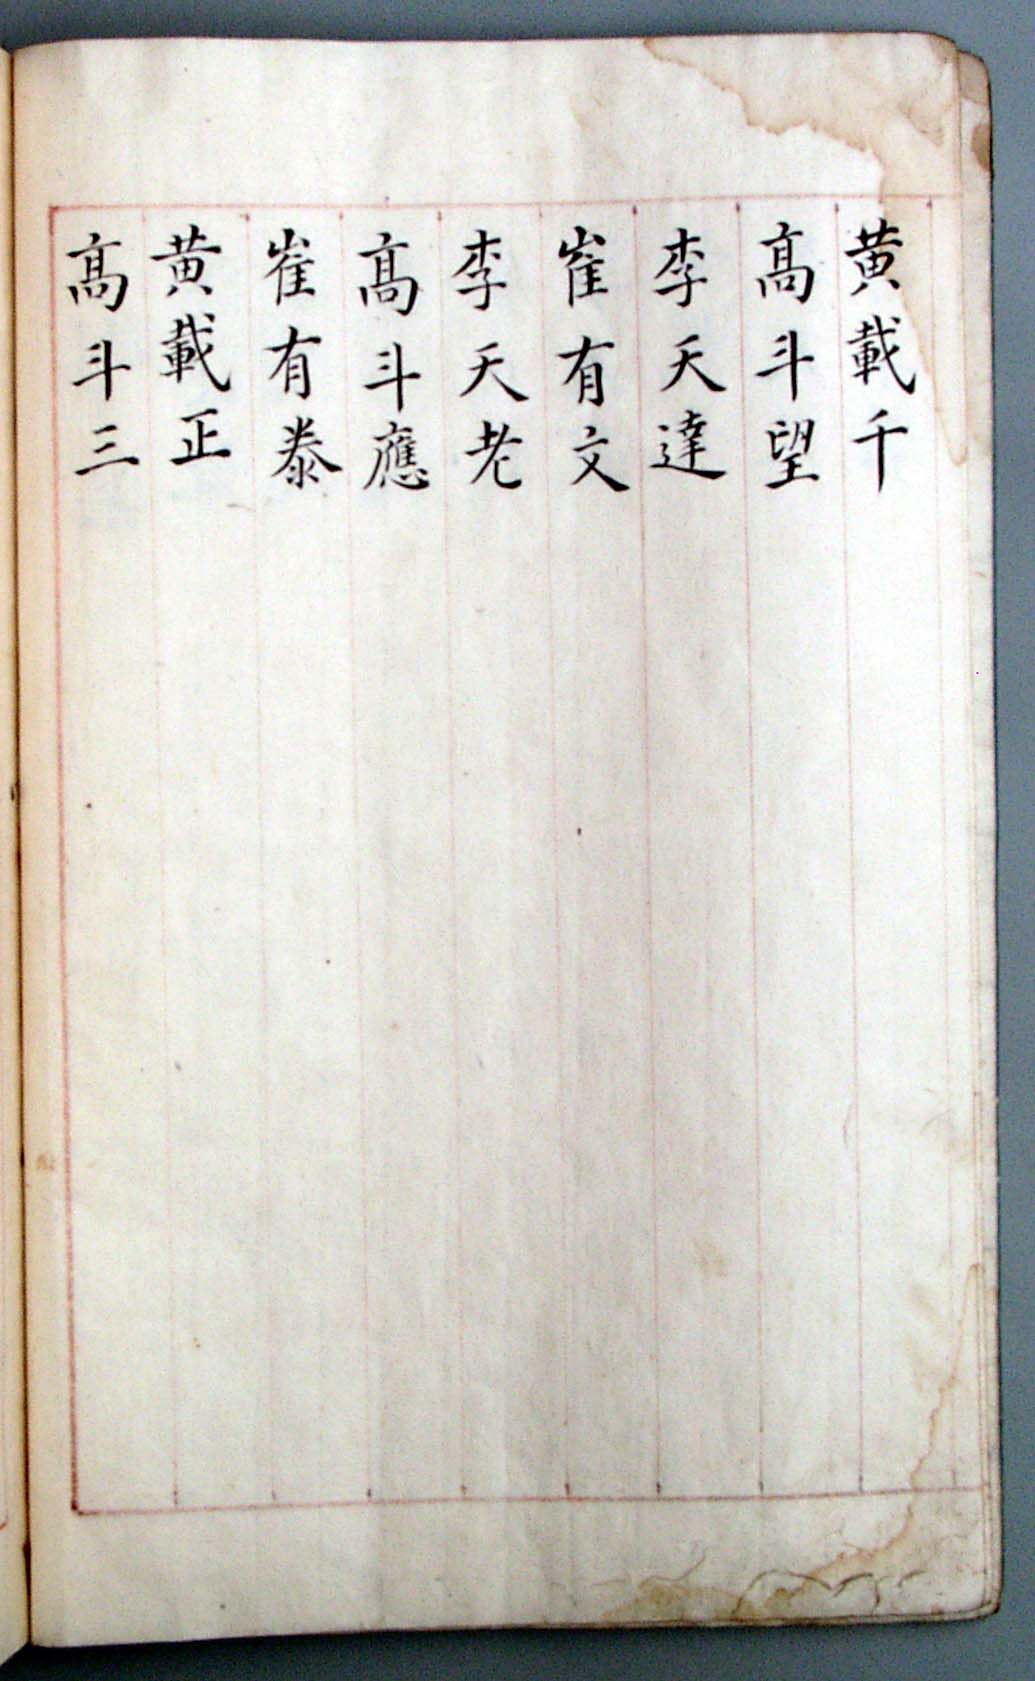 黄載千
高斗望
李天達
崔有文
李天老
高斗應
崔有泰
黄載正
高斗三